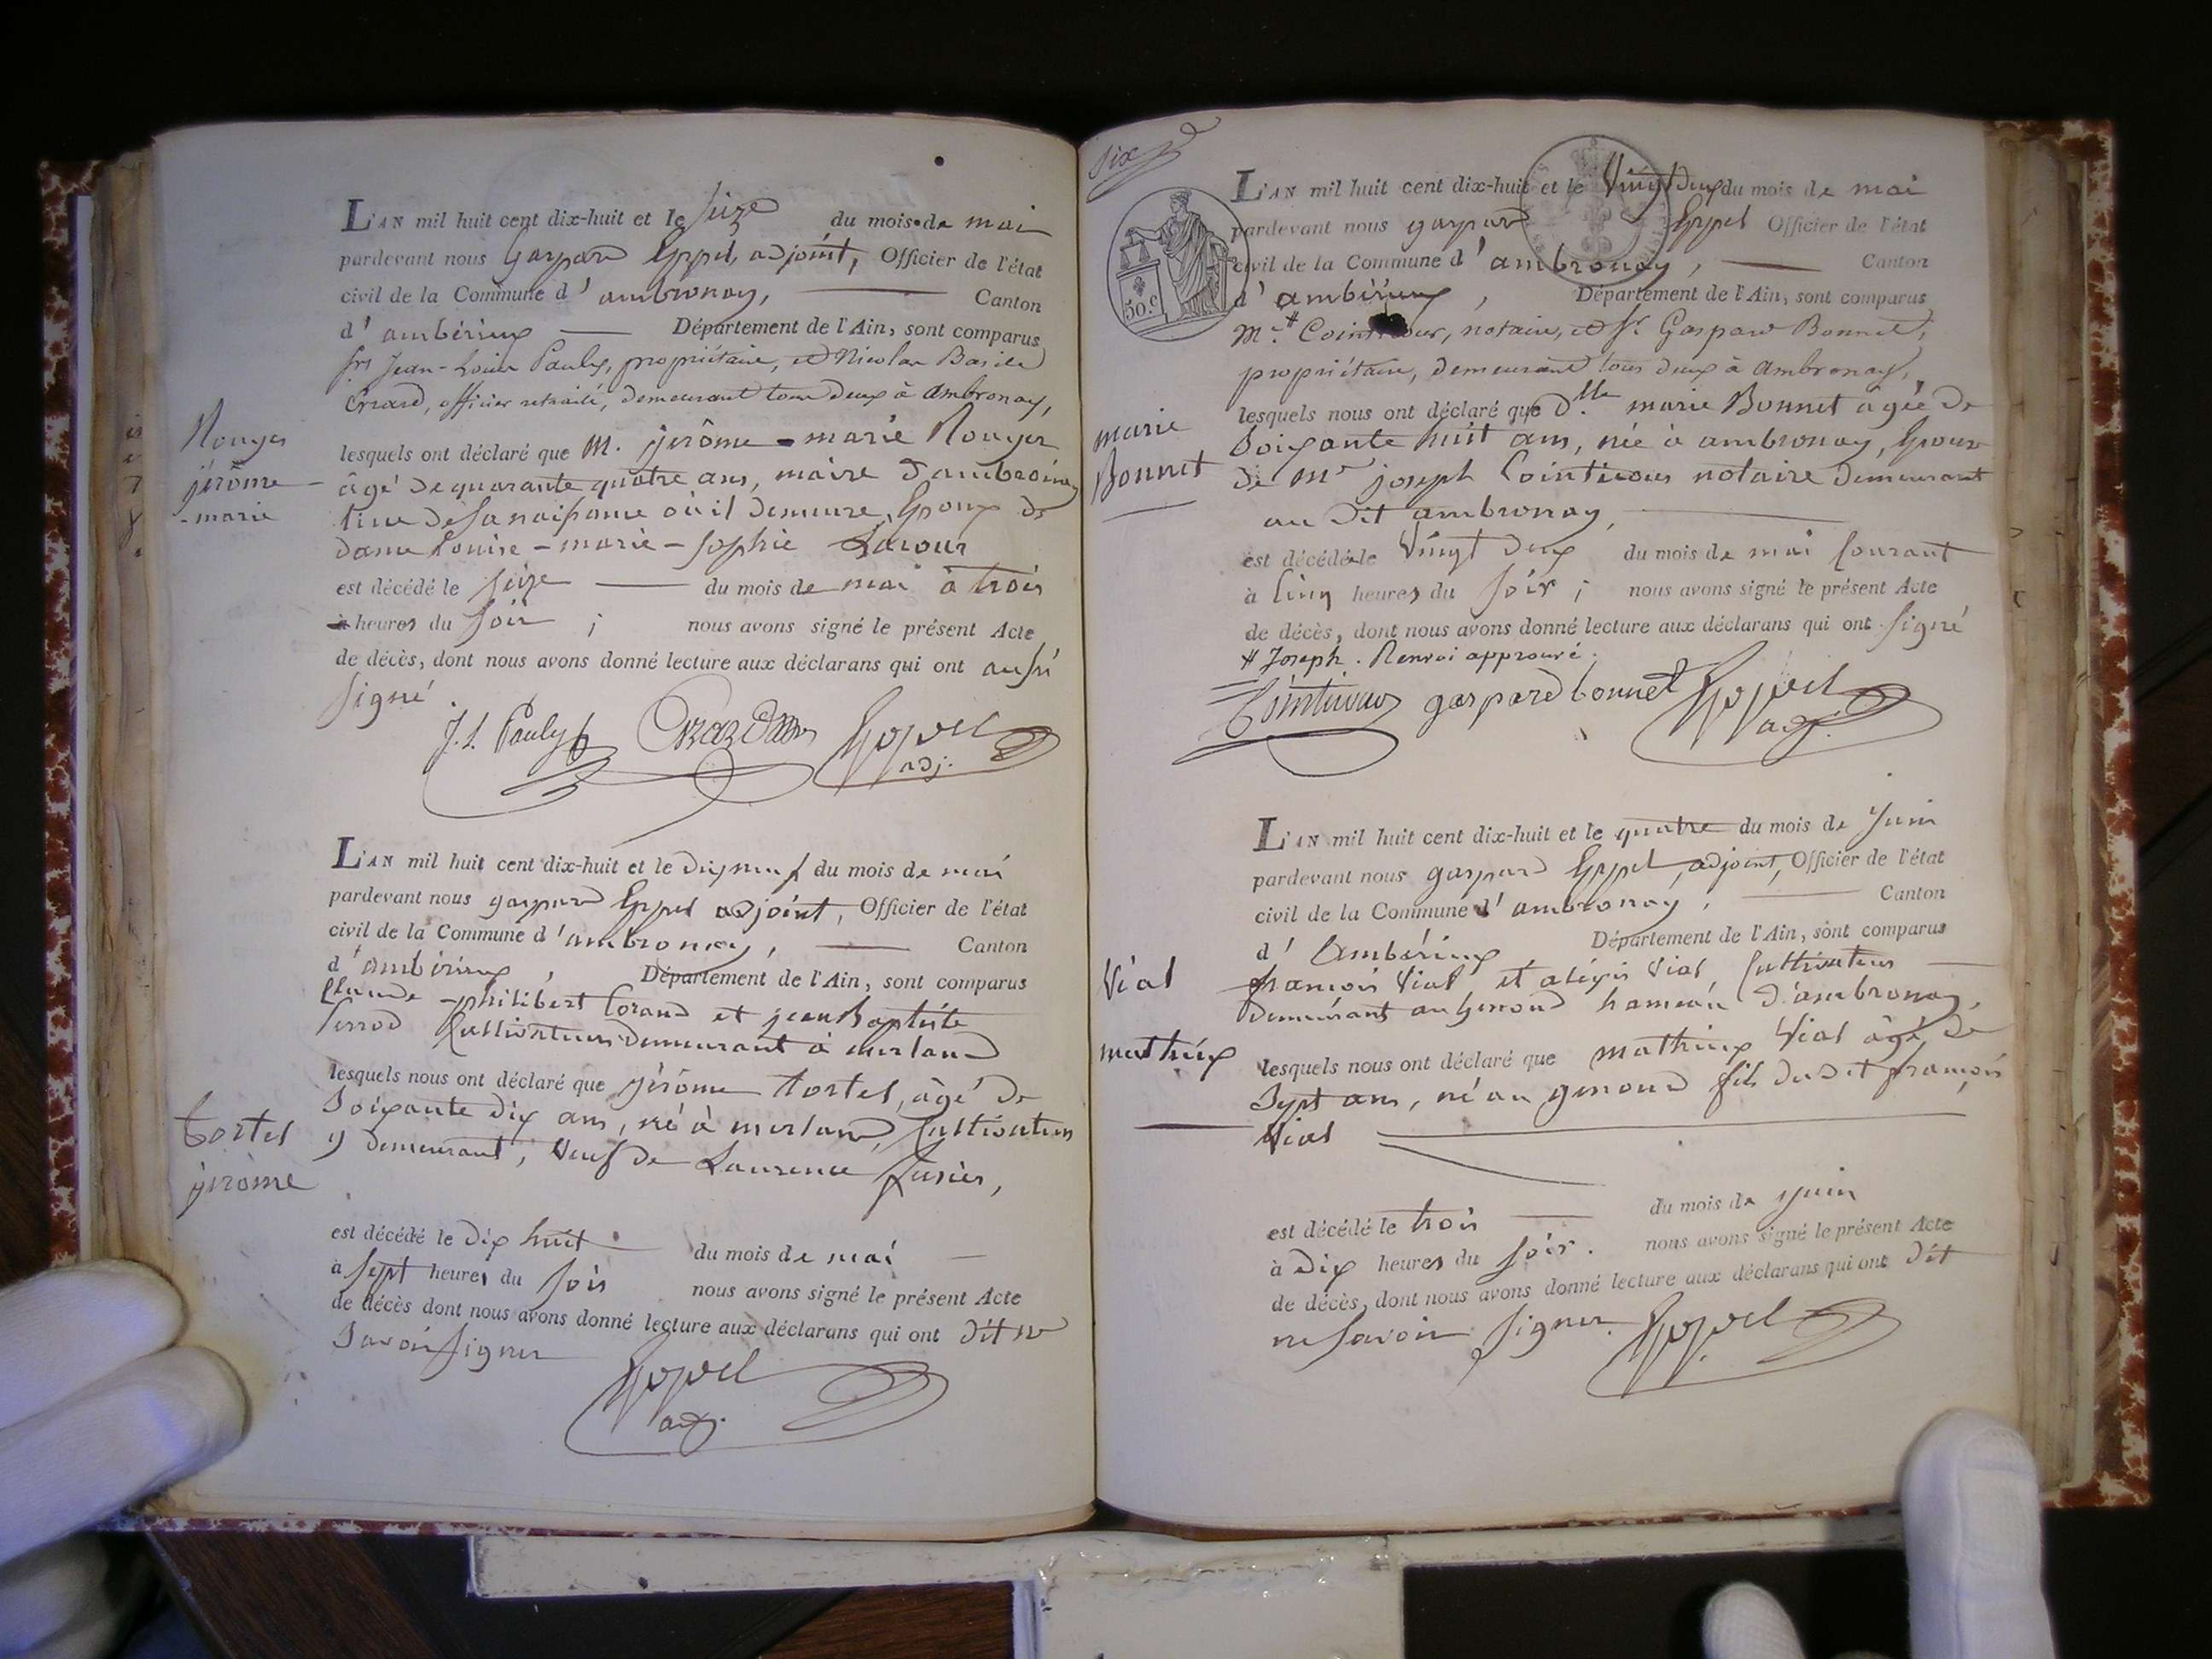 L'AN mil huit cent dix-huit et le Seize du mois de mai
pardevant nous Gaspard Eppel, adjoint, Officier de l'état
civil de la Commune d'ambronay, Canton
d'ambérieux Département de l'Ain, sont comparus
srs Jean-Louis Pauly, propriétaire, et Nicolas Basile
Crzard, officier retraité, demeurant tous deux à Ambronay,
Rouyer
jérôme
-marie
lesquels ont déclaré que M. jérôme-marie Rouyer
âgé de quarante quatre ans, maire d'ambronay
lieu de sa naissance où il demeure, Epoux de
dame Louise-marie-sophie
est décédé le seize du mois de mai à trois
heures du soir ; nous avons signé le présent Acte
de décès, dont nous avons donné lecture aux déclarans qui ont aussi
signé.
J. L. Pauly Eppel
adj.
L'AN mil huit cent dix-huit et le dix neuf du mois de mai
pardevant nous gaspard Eppel adjoint, Officier de l'état
civil de la Commune d'ambronay, Canton
d'ambérieux, Département de l'Ain, sont comparus
Claude-philibert et jean Baptiste
Cultivateurs demeurant à merland
lesquels nous ont déclaré que jérôme tortel, âgé de
Soixante dix ans, né à merland, Cultivateur
Tortel
jérôme
y demeurant, Veuf de Laurence
est décédé le dix huit du mois de mai
à sept heures du soir nous avons signé le présent Acte
de décès dont nous avons donné lecture aux déclarans qui ont dit ne
Savoir signer
Eppel
adj.
Six
50.c
L'AN mil huit cent dix-huit et le Vingt deux du mois de mai
pardevant nous gaspard Eppel Officier de l'état
civil de la Commune d'ambronay, Canton
d'ambérieux, Département de l'Ain, sont comparus
Me # Cointicour, notaire, et Sr Gaspard Bonnet,
propriétaire, demeurant tous deux à Ambronay,
marie
Bonnet
lesquels nous ont déclaré que dlle marie Bonnet âgée de
Soixante huit ans, née à ambronay, Epouse
de mr joseph Cointicour notaire demeurant
au dit ambronay,
est décédée le Vingt deux du mois de mai Courant
à Cinq heures du soir ; nous avons signé le présent Acte
de décès, dont nous avons donné lecture aux déclarans qui ont signé
# Joseph. Renvoi approuvé.
Cointicour gaspard bonnet Eppel
adj.
L'AN mil huit cent dix-huit et le quatre du mois de Juin
pardevant nous gaspard Eppel, adjoint, Officier de l'état
civil de la Commune d'ambronay, Canton
d'Ambérieux Département de l'Ain, sont comparus
Vial
mathieux
françois Vial et aléxis Vial Cultivateurs
demeurant au genoud hameau d'ambronay,
lesquels nous ont déclaré que mathieux Vial âgé de
Sept ans, né au genoud fils du dit françois
Vial
est décédé le trois du mois de juin
à Dix heures du soir. nous avons signé le présent Acte
de décès, dont nous avons donné lecture aux déclarans qui ont dit
ne savoir signer. Eppel